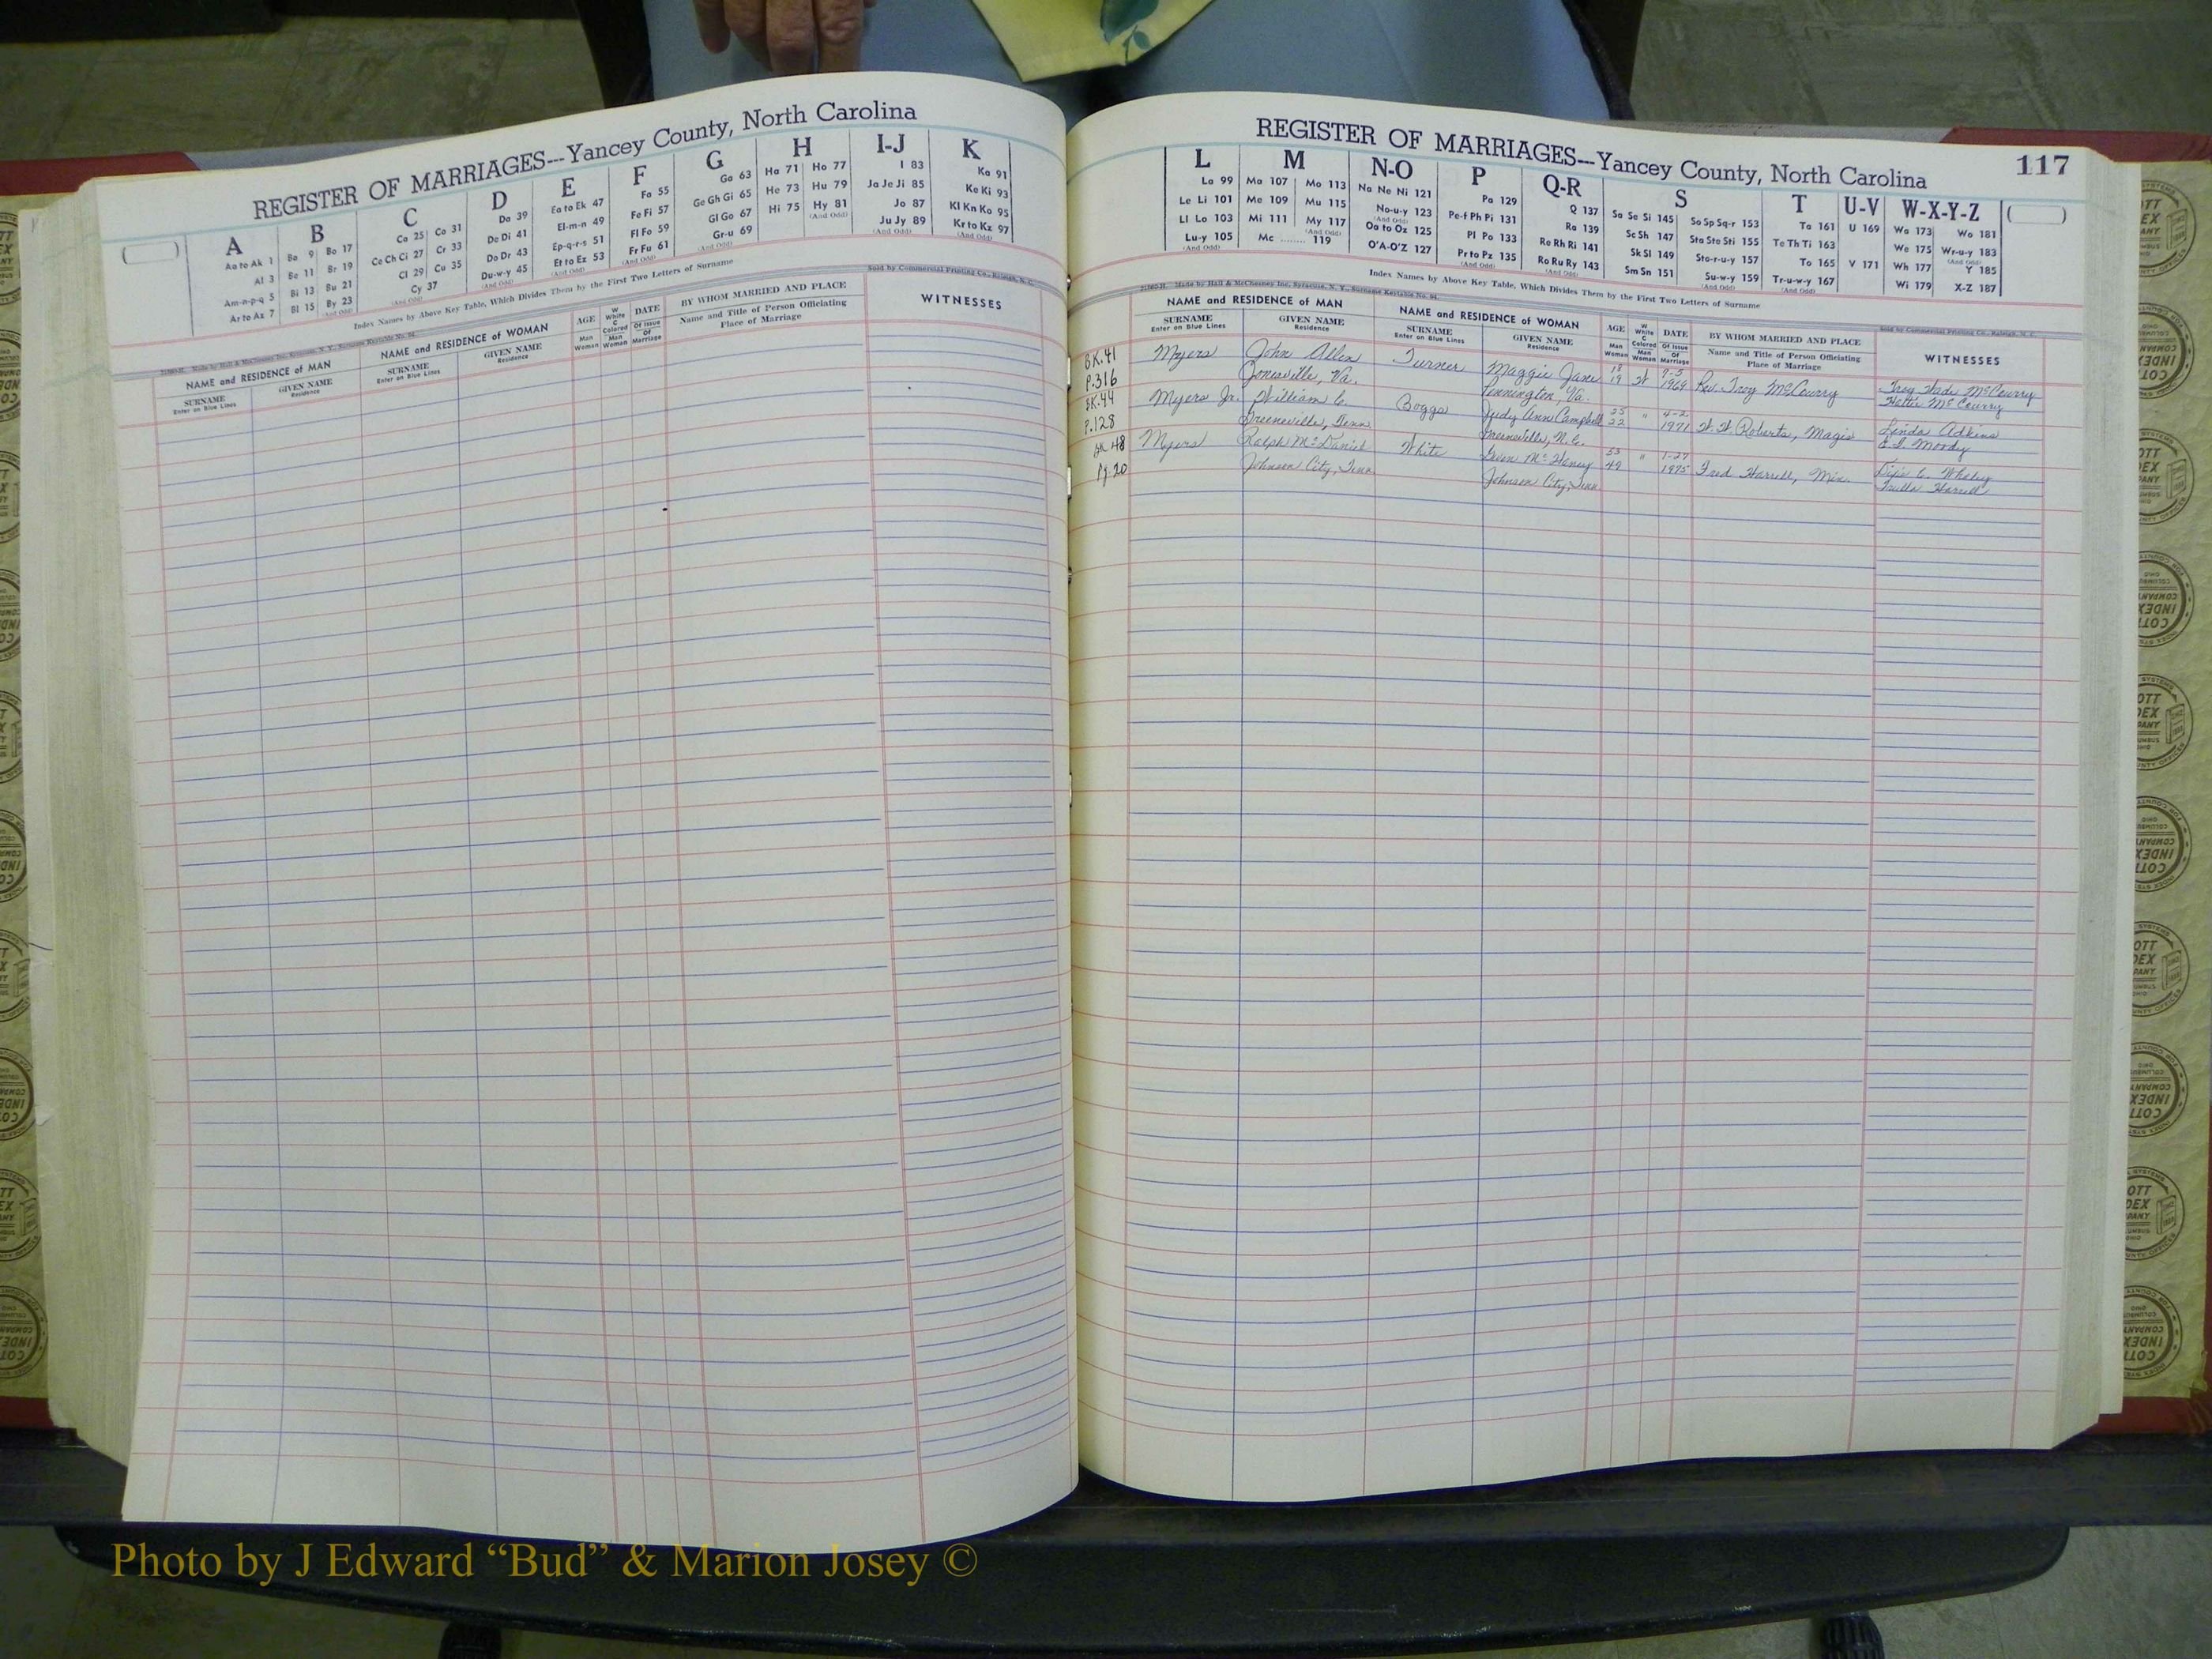 REGISTER OF MARRIAGES---Yancey County, North Carolina
A B C D E F G H I-J K
Aa to Ak 1
Al 3
Am-n-p-q 5
Ar to Az 7
Ba 9 Bo 17
Be 11 Br 19
Bi 13 Bu 21
Bl 15 By 23
(And Odd)
Ca 25 Co 31
Ce Ch Ci 27 Cr 33
Cl 29 Cu 35
Cy 37
(And Odd)
Da 39
De Di 41
Do Dr 43
Du-w-y 45
(And Odd)
Ea to Ek 47
El-m-n 49
Ep-q-r-s 51
Et to Ez 53
(And Odd)
Fa 55
Fe Fi 57
Fl Fo 59
Fr Fu 61
(And Odd)
Ga 63
Ge Gh Gi 65
Gl Go 67
Gr-u 69
(And Odd)
Ha 71 Ho 77
He 73 Hu 79
Hi 75 Hy 81
(And Odd)
I 83
Ja Je Ji 85
Jo 87
Ju Jy 89
(And Odd)
Ka 91
Ke Ki 93
Kl Kn Ko 95
Kr to Kz 97
(And Odd)
Index Names by Above Key Table, Which Divides Them by the First Two Letters of Surname
Made by Hall & McChesney Inc, Syracuse, N. Y., Surname Keytable No. 94.
Sold by Commercial Printing Co., Raleigh, N. C.
NAME and RESIDENCE of MAN
SURNAME
Enter on Blue Lines
GIVEN NAME
Residence
NAME and RESIDENCE of WOMAN
SURNAME
Enter on Blue Lines
GIVEN NAME
Residence
AGE
Man
Woman
W
White
C
Colored
Man
Woman
DATE
Of Issue
Of
Marriage
BY WHOM MARRIED AND PLACE
Name and Title of Person Officiating
Place of Marriage
WITNESSES
REGISTER OF MARRIAGES---Yancey County, North Carolina
117
L M N-O P Q-R S T U-V W-X-Y-Z
La 99
Le Li 101
Ll Lo 103
Lu-y 105
(And Odd)
Ma 107 Mo 113
Me 109 Mu 115
Mi 111 My 117
(And Odd)
Mc ........ 119
Na Ne Ni 121
No-u-y 123
(And Odd)
Oa to Oz 125
O'A-O'Z 127
Pa 129
Pe-f Ph Pi 131
Pl Po 133
Pr to Pz 135
(And Odd)
Q 137
Ra 139
Re Rh Ri 141
Ro Ru Ry 143
(And Odd)
Sa Se Si 145 So Sp Sq-r 153
Sc Sh 147 Sta Ste Sti 155
Sk Sl 149 Sto-r-u-y 157
Sm Sn 151 Su-w-y 159
(And Odd)
Ta 161
Te Th Ti 163
To 165
Tr-u-w-y 167
(And Odd)
U 169
V 171
Wa 173 Wo 181
We 175 Wr-u-y 183
(And Odd)
Wh 177 Y 185
Wi 179 X-Z 187
Index Names by Above Key Table, Which Divides Them by the First Two Letters of Surname
Made by Hall & McChesney Inc, Syracuse, N. Y., Surname Keytable No. 94.
Sold by Commercial Printing Co., Raleigh, N. C.
NAME and RESIDENCE of MAN
SURNAME
Enter on Blue Lines
GIVEN NAME
Residence
NAME and RESIDENCE of WOMAN
SURNAME
Enter on Blue Lines
GIVEN NAME
Residence
AGE
Man
Woman
W
White
C
Colored
Man
Woman
DATE
Of Issue
Of
Marriage
BY WHOM MARRIED AND PLACE
Name and Title of Person Officiating
Place of Marriage
WITNESSES
BK.41 Myers John Allen Turner Maggie Jane 18 W 7-5 Rev. Troy McCourry Troy Wade McCourry
P.316 Jonesville, Va. Pennington, Va. 19 1969 Hettie McCourry
BK.44 Myers Jr. William C. Boggs Judy Ann Campbell 25 " 4-2 W.W. Roberts, Magis Linda Adkins
P.128 Greeneville, Tenn. Greeneville, N.C. 22 1971 E.I. Moody
BK 48 Myers Ralph McDaniel White McHenry 53 " 1-27 Fred Harrell, Min. C. Whaley
Pg. 20 Johnson City, Tenn. Johnson City, Tenn. 49 1975 Trulla Harrell
Photo by J Edward “Bud” & Marion Josey ©